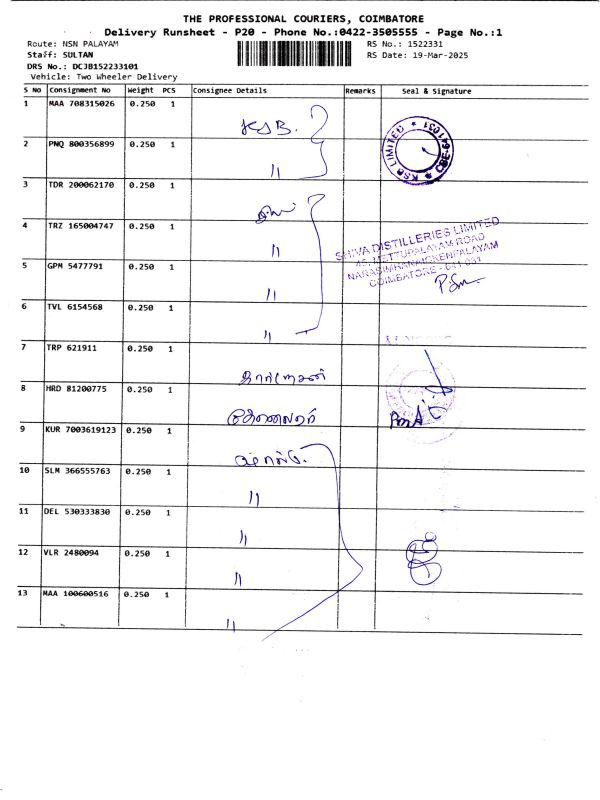 THE PROFESSIONAL COURIERS, COIMBATORE
Delivery Runsheet - P20 - Phone No.:0422-3505555 - Page No.:1
Route: NSN PALAYAM RS No.: 1522331
Staff: SULTAN RS Date: 19-Mar-2025
DRS No.: DCJB152233101
Vehicle: Two Wheeler Delivery
S No Consignment No Weight PCS Consignee Details Remarks Seal & Signature
1 MAA 708315026 0.250 1
KSB.
KSB LIMITED ★ CBE-641031 ★
2 PNQ 800356899 0.250 1
"
3 TDR 200062170 0.250 1
4 TRZ 165004747 0.250 1
"
SHIVA DISTILLERIES LIMITED
45, METTUPALAYAM ROAD
NARASIMHANAICKENPALAYAM
COIMBATORE - 641 031
5 GPM 5477791 0.250 1
"
6 TVL 6154568 0.250 1
"
7 TRP 621911 0.250 1
8 HRD 81200775 0.250 1
9 KUR 7003619123 0.250 1
10 SLM 366555763 0.250 1
"
11 DEL 530333830 0.250 1
"
12 VLR 2480094 0.250 1
"
13 MAA 100600516 0.250 1
"